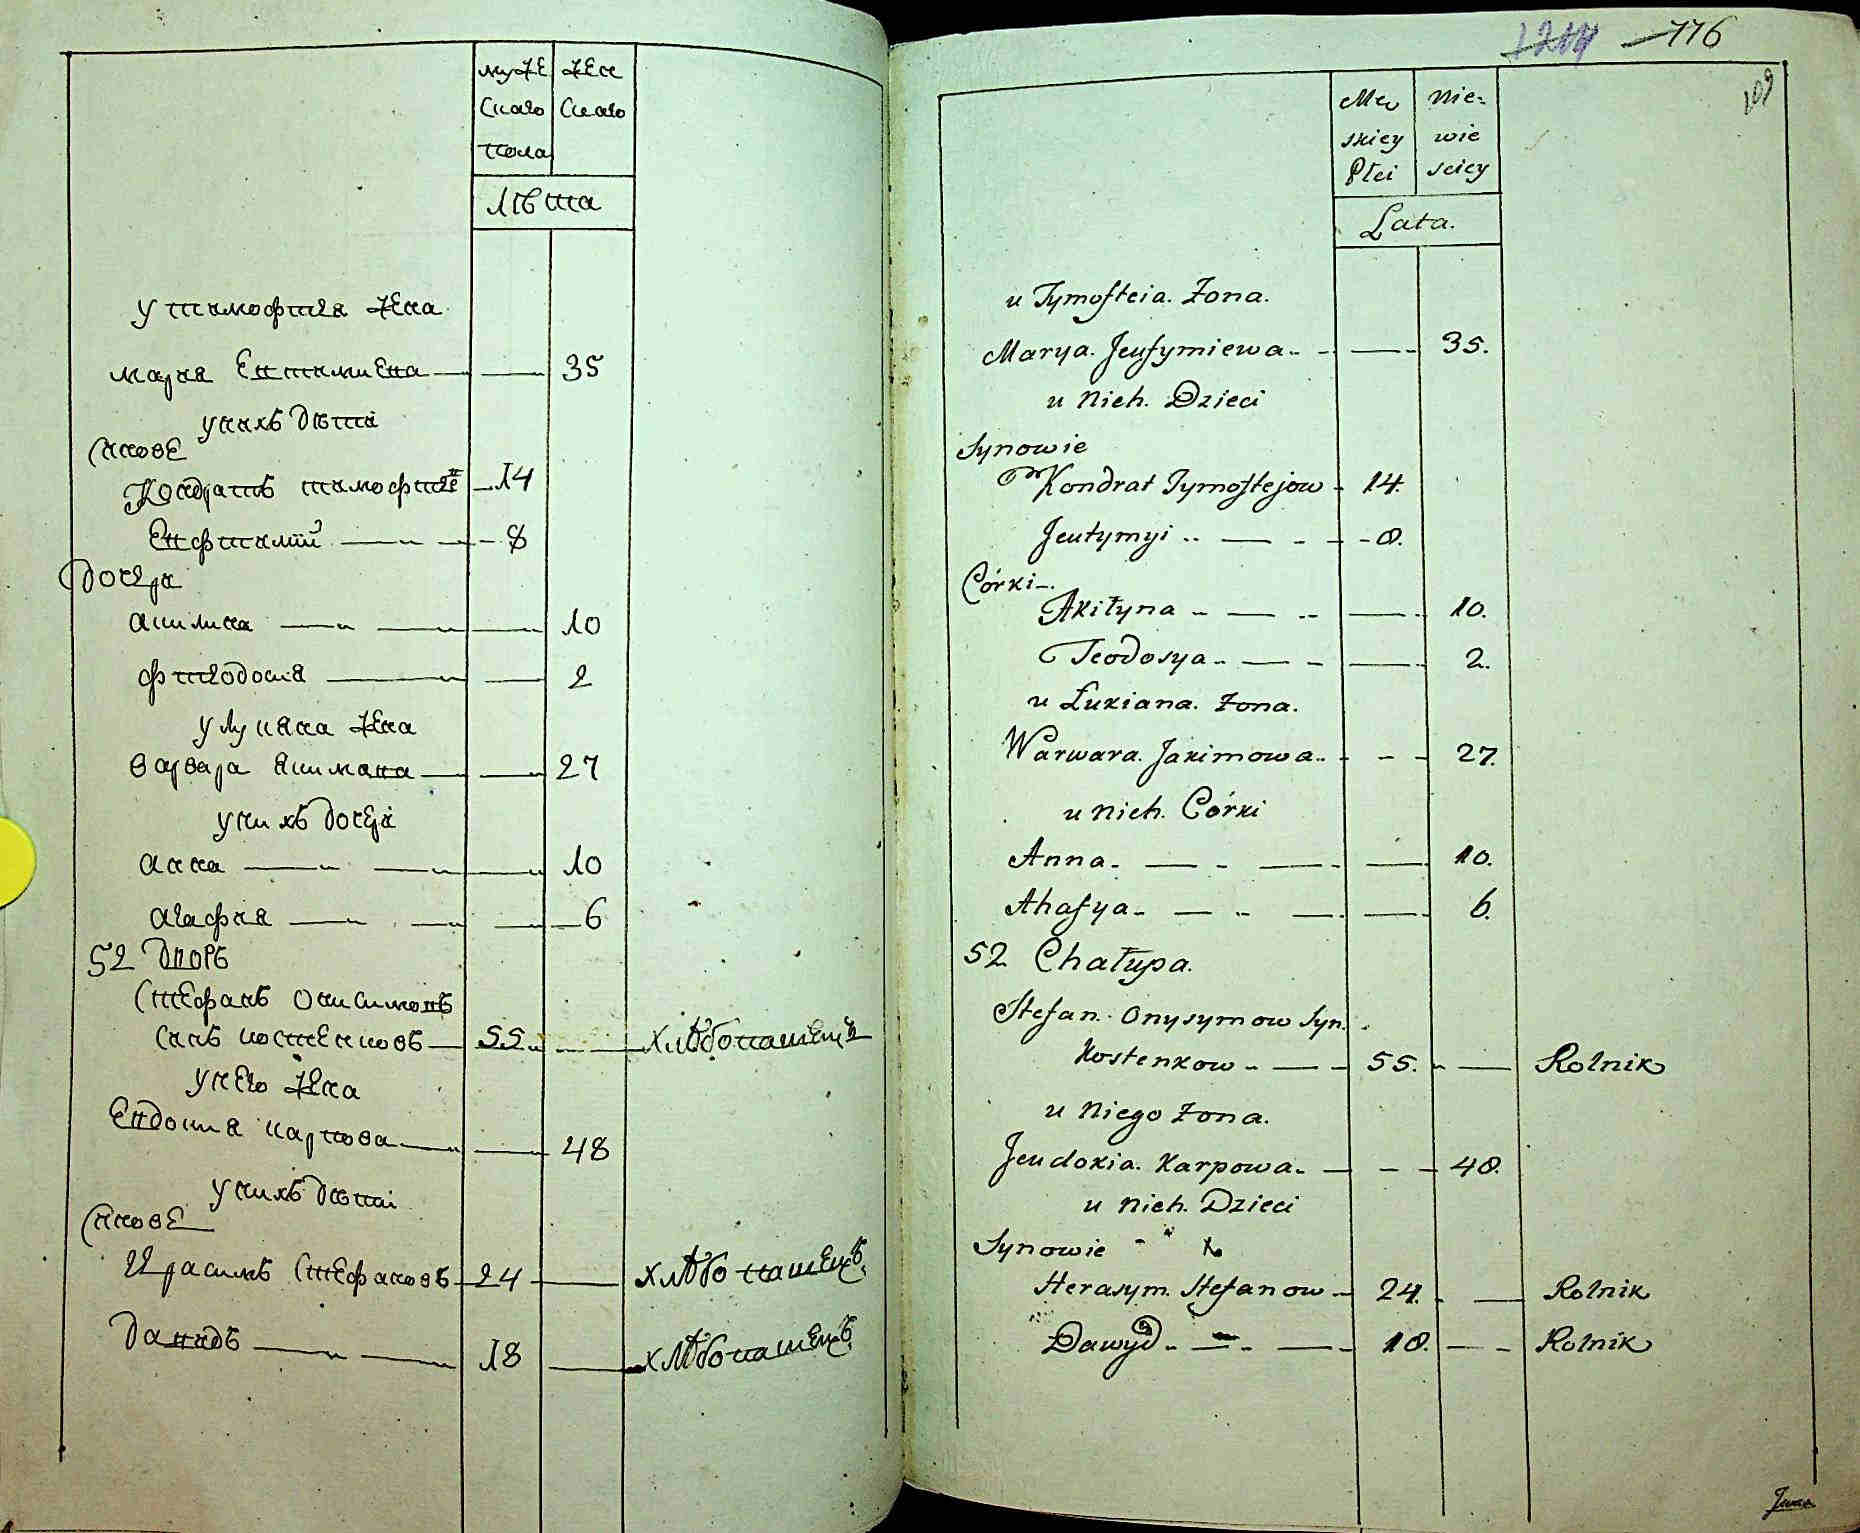 муже
скаго
пола
жен
скаго
лѣта
у тимофтея жена
марія Ептимиева 35
у нихъ дѣти
Сынове
Кондратъ тимофтеев 14
Евфтимій 8
дочери
акилина 10
фтеодосия 2
у лукяна жена
варвара якимова 27
у нихъ дочери
анна 10
агафия 6
52 дворъ
Стефанъ Онисимовъ
Синъ костенковъ 55 хлѣбопашецъ
у него жена
Евдокия карпова 48
у нихъ дѣти
Сынове
Ирасимъ Стефановъ 24 хлѣбопашецъ
давидъ 18 хлѣбопашецъ
1214 776
109
Me
skiey
Płci
Nie-
wie
sciey
Lata.
u Tymofteia. Żona.
Marya. Jeufymiewa 35.
u Nich. Dzieci
Synowie
Kondrat Tymoftejow 14.
Jeutymyi 8.
Córki
Akiłyna 10.
Teodosya 2.
u Łukiana. Żona.
Warwara. Jakimowa 27.
u Nich. Córki
Anna 10.
Ahafya 6.
52 Chałupa.
Stefan. Onysymow Syn.
Kostenkow 55. Rolnik
u Niego Żona.
Jeudokia. Karpowa 48.
u Nich. Dzieci
Synowie
Herasym. Stefanow 24. Rolnik
Dawyd 18. Rolnik